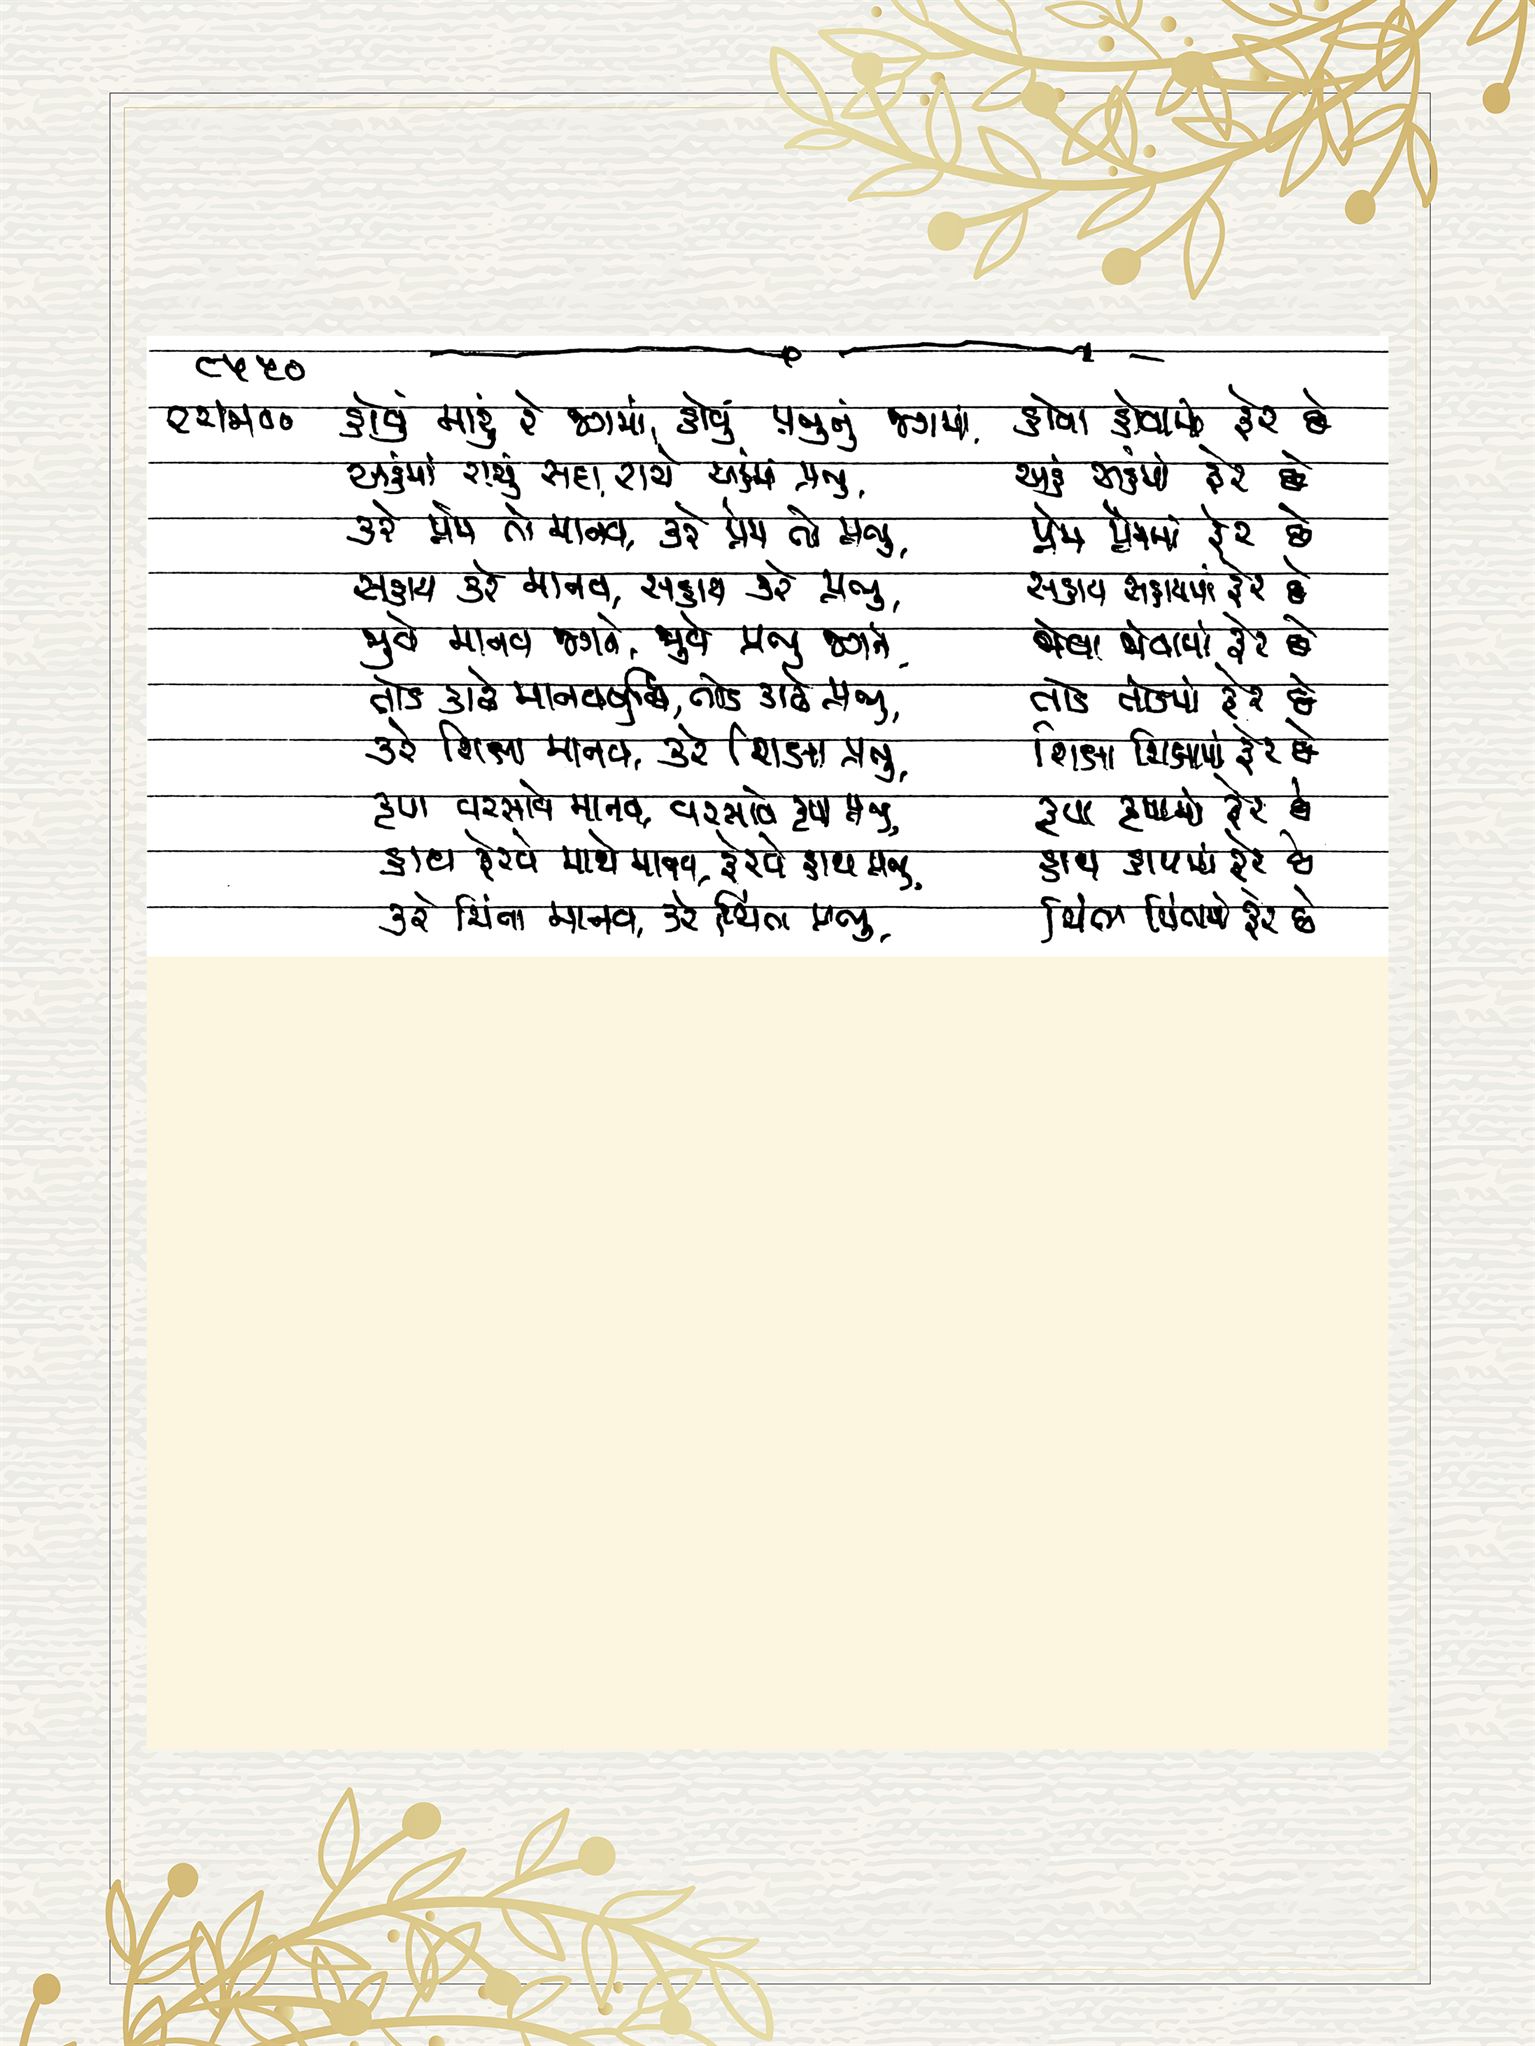 ૯૫૫૦
હોવું મારું રે જગમાં, હોવું પ્રભુનું જગમાં, હોવા હોવામાં ફેર છે
અહંમાં રાચું સદા, રાચે અહંમાં પ્રભુ, અહં અહંમાં ફેર છે
કરે પ્રેમ તો માનવ, કરે પ્રેમ તો પ્રભુ, પ્રેમ પ્રેમમાં ફેર છે
સહાય કરે માનવ, સહાય કરે પ્રભુ, સહાય સહાયમાં ફેર છે
જુવે માનવ જગને, જુવે પ્રભુ જગને, જોવા જોવામાં ફેર છે
તોડ કાઢે માનવબુદ્ધિ, તોડ કાઢે પ્રભુ, તોડ તોડમાં ફેર છે
કરે શિક્ષા માનવ, કરે શિક્ષા પ્રભુ, શિક્ષા શિક્ષામાં ફેર છે
કૃપા વરસાવે માનવ, વરસાવે કૃપા પ્રભુ, કૃપા કૃપામાં ફેર છે
હાથ ફેરવે માથે માનવ, ફેરવે હાથ પ્રભુ, હાથ હાથમાં ફેર છે
કરે ચિંતા માનવ, કરે ચિંતા પ્રભુ, ચિંતા ચિંતામાં ફેર છે